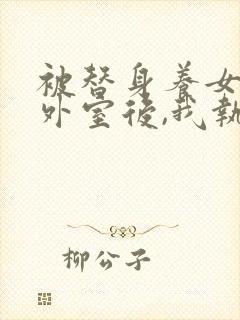 被替身養女
外室後,我執
柳公子